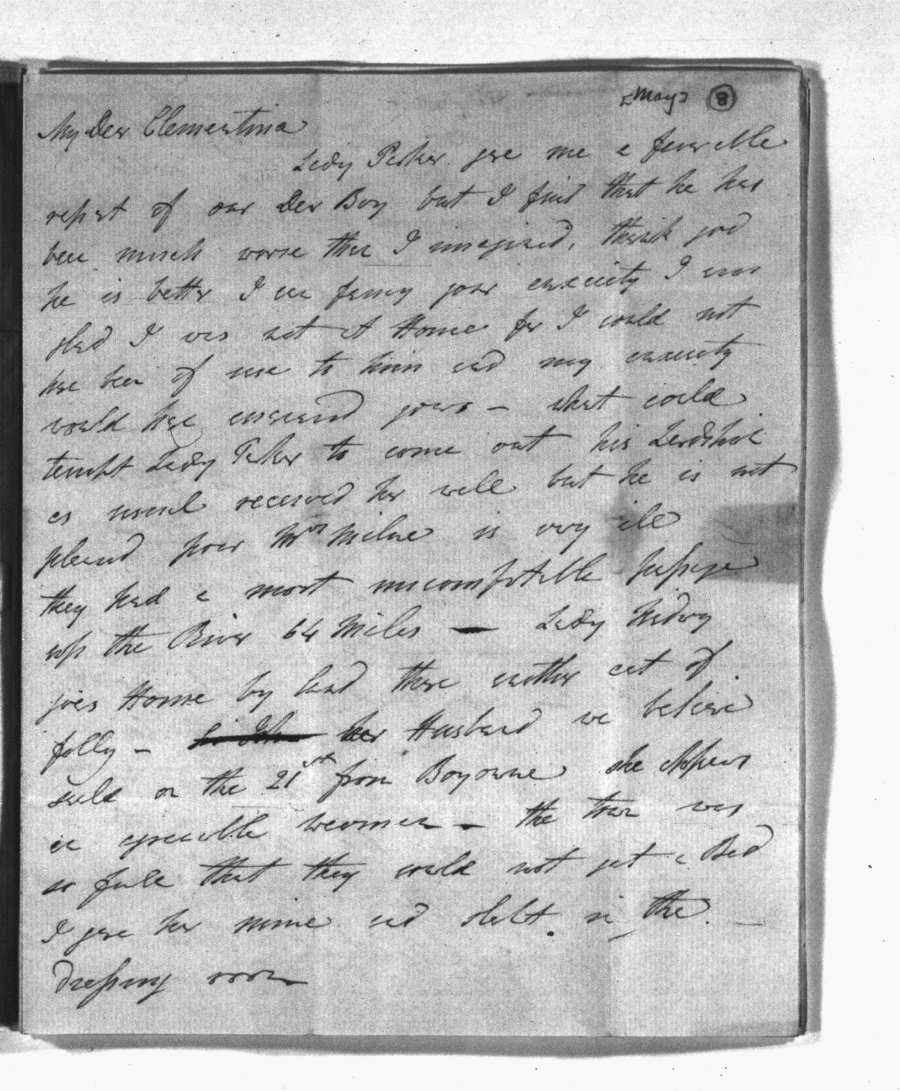 [May] 8
My Dear Clementina
Lady Parker gave me a favorable
report of our Dear Boy but I find that he has
been much worse than I imagined, thank god
he is better I can fancy your anxiety I am
Glad I was not at Home for I could not
have been of use to him and my anxiety
would have encreased yours – what could
tempt Lady Parker to come out his Lordship
as usual received her well but he is not
pleased poor Mrs Milne is very ill
they had a most uncomfortable passage
up the River 64 Miles — Lady
goes Home by land there another act of
folly – her Husband we believe
sails on the 21st from she appears
an agreeable woman – the town was
so full that they could not get a Bed
I gave her mine and slept in the
dressing room